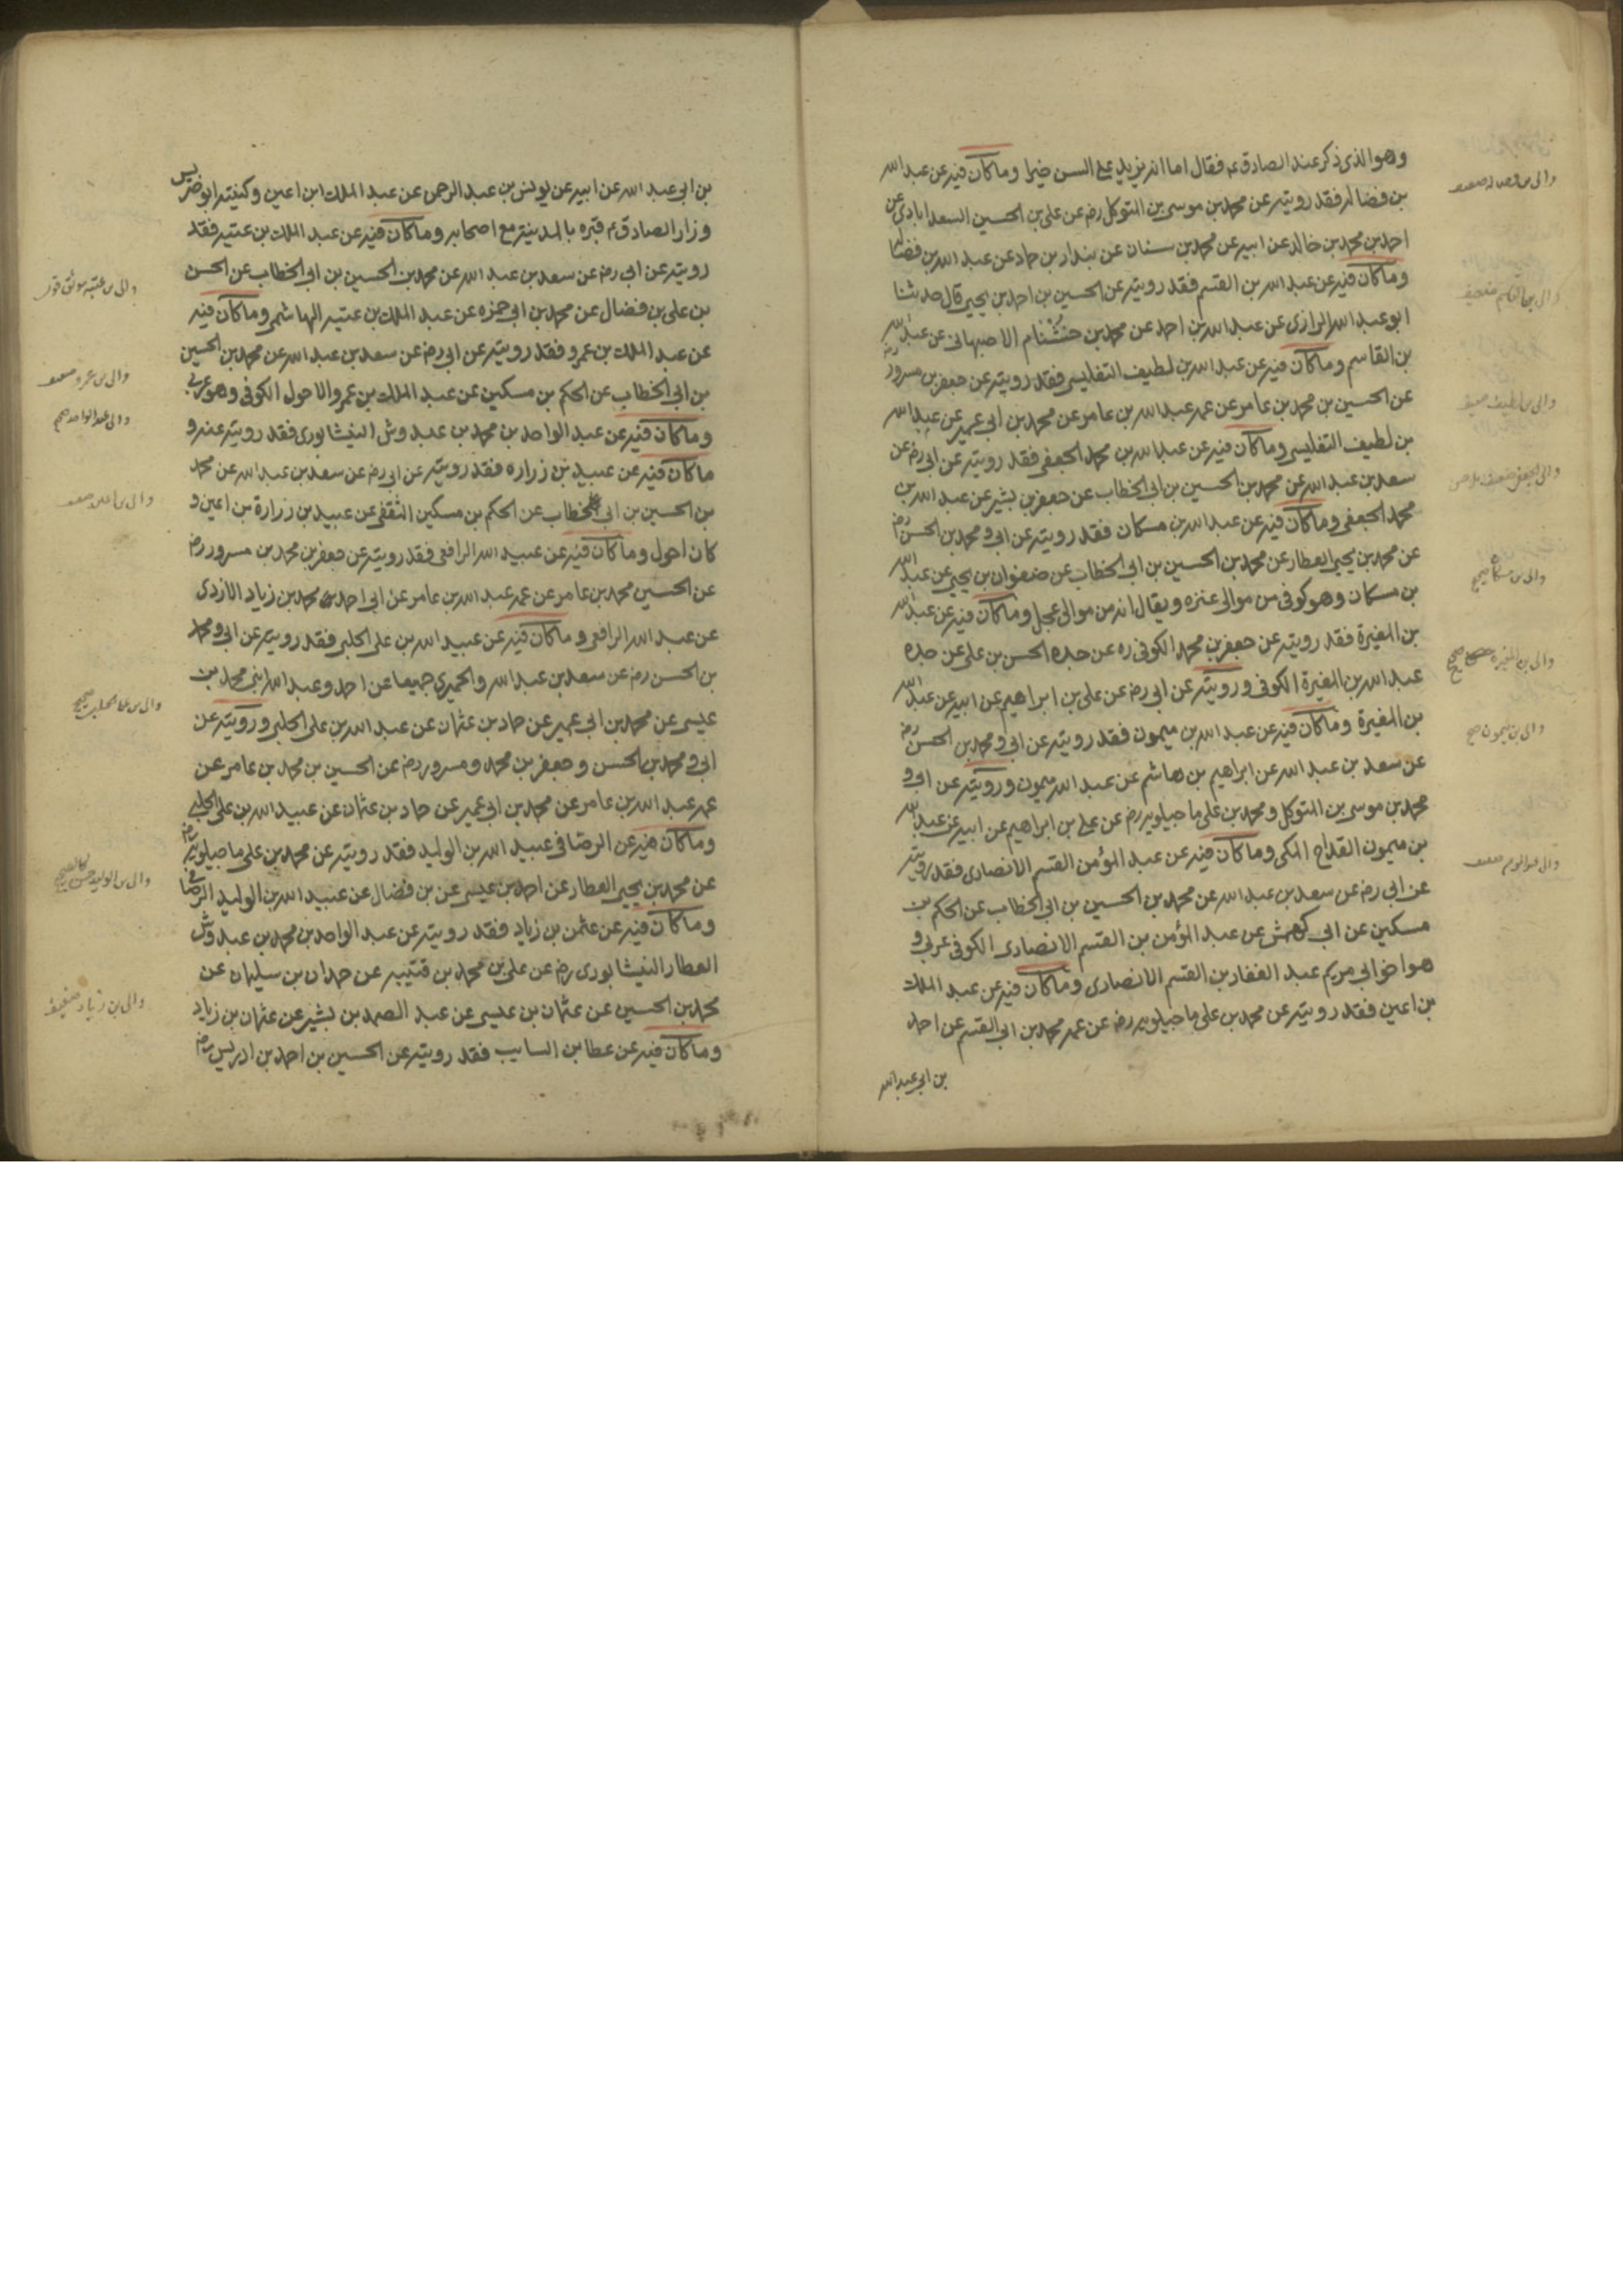 وهو الذي ذكر عند الصادق ع فقال اما انه يزيد على السن خيرا وما كان فيه عن عبد الله
بن فضاله فقد رويته عن محمد بن موسى بن المتوكل رضه عن على بن الحسين السعدابادى عن
احمد بن محمد بن خالد عن ابيه عن محمد بن سنان عن بندار بن حماد عن عبد الله بن فضاله
وما كان فيه عن عبد الله بن القسم فقد رويته عن الحسين بن احمد بن يحيى قال حدثنا
ابو عبد الله الرازى عن عبد الله بن احمد عن محمد بن خشنام الاصبهانى عن عبد الله
بن القاسم وما كان فيه عن عبد الله بن لطيف التفليسى فقد رويته عن جعفر بن مسرور رضه
عن الحسين بن محمد بن عامر عن عمه عبد الله بن عامر عن محمد بن ابى عمير عن عبد الله
بن لطيف التفليسى وما كان فيه عن عبد الله بن محمد الجعفى فقد رويته عن ابى رضه عن
سعد بن عبد الله عن محمد بن الحسين بن ابى الخطاب عن جعفر بن بشير عن عبد الله بن
محمد الجعفى وما كان فيه عن عبد الله بن مسكان فقد رويته عن ابى و محمد بن الحسن رضه
عن محمد بن يحيى العطار عن محمد بن الحسين بن ابى الخطاب عن صفوان بن يحيى عن عبد الله
بن مسكان وهو كوفى من موالى عنزه ويقال انه من موالى عجل وما كان فيه عن عبد الله
بن المغيرة فقد رويته عن جعفر بن محمد الكوفى ره عن جده الحسن بن على عن جده
عبد الله بن المغيرة الكوفى ورويته عن ابى رضه عن على بن ابراهيم عن ابيه عن عبد الله
بن المغيرة وما كان فيه عن عبد الله بن ميمون فقد رويته عن ابى و محمد بن الحسن رضه
عن سعد بن عبد الله عن ابراهيم بن هاشم عن عبد الله ميمون ورويته عن ابى و
محمد بن موسى بن المتوكل و محمد بن على ماجيلويه رضه عن على بن ابراهيم عن ابيه عن عبد الله
بن ميمون القداح المكى وما كان فيه عن عبد المؤمن القسم الانصارى فقد رويته
عن ابى رضه عن سعد بن عبد الله عن محمد بن الحسين بن ابى الخطاب عن الحكم بن
مسكين عن ابى كهمش عن عبد المؤمن بن القسم الانصارى الكوفى عربى و
هو اخو ابى مريم عبد الغفار بن القسم الانصارى وما كان فيه عن عبد الملك
بن اعين فقد رويته عن محمد بن على ماجيلويه رضه عن عمه محمد بن ابى القسم عن احمد
بن ابى عبد الله
والى بن القاسم ضعيف
والى بن لطيف ضعيف
والى بن مسكان صحيح
والى بن المغيرة صحيح
والى بن ميمون صح
بن ابى عبد الله عن ابيه عن يونس بن عبد الرحمن عن عبد الملك ابن اعين وكنيته ابو ضريس
وزار الصادق ع قبره بالمدينة مع اصحابه وما كان فيه عن عبد الملك بن عتبه فقد
رويته عن ابى رضه عن سعد بن عبد الله عن محمد بن الحسين بن ابى الخطاب عن الحسن
بن على بن فضال عن محمد بن ابى حمزه عن عبد الملك بن عتبه الهاشمى وما كان فيه
عن عبد الملك بن عمرو فقد رويته عن ابى رضه عن سعد بن عبد الله عن محمد بن الحسين
بن ابى الخطاب عن الحكم بن مسكين عن عبد الملك بن عمرو الاحول الكوفى وهو عربى
وما كان فيه عن عبد الواحد بن محمد بن عبدوش النيشابورى فقد رويته عنه و
ما كان فيه عن عبيد بن زراره فقد رويته عن ابى رضه عن سعد بن عبد الله عن محمد
بن الحسين بن ابى الخطاب عن الحكم بن مسكين الثقفى عن عبيد بن زرارة بن اعين و
كان احول وما كان فيه عن عبيد الله الرافعى فقد رويته عن جعفر بن محمد بن مسرور رضه
عن الحسين محمد بن عامر عن عمه عبد الله بن عامر عن ابى احمد محمد بن زياد الازدى
عن عبد الله الرافعى وما كان فيه عن عبيد الله بن على الحلبى فقد رويته عن ابى و محمد
بن الحسن رضه عن سعد بن عبد الله والحميرى جميعا عن احمد وعبد الله ابنى محمد بن
عيسى عن محمد بن ابى عمير عن حماد بن عثمان عن عبد الله بن على الحلبى ورويته عن
ابى و محمد بن الحسن و جعفر بن محمد ومسرور رضه عن الحسين بن محمد بن عامر عن
عمه عبد الله بن عامر عن محمد بن ابى عمير عن حماد بن عثمان عن عبيد الله بن على الحلبى
وما كان فيه عن الرصافى عبيد الله بن الوليد فقد رويته عن محمد بن على ماجيلويه رضه
عن محمد بن يحيى العطار عن احمد بن عيسى عن بن فضال عن عبيد الله بن الوليد الرصافى
وما كان فيه عن عثمن بن زياد فقد رويته عن عبد الواحد بن محمد بن عبدوش
العطار النيشابورى رضه عن على بن محمد بن قتيبه عن حمدان بن سليمان عن
محمد بن الحسين عن عثمان بن عيسى عن عبد الصمد بن بشير عن عثمان بن زياد
وما كان فيه عن عطا بن السايب فقد رويته عن الحسين بن احمد بن ادريس رضه
والى عبد الواحد صحيح
والى بن زياد ضعيف